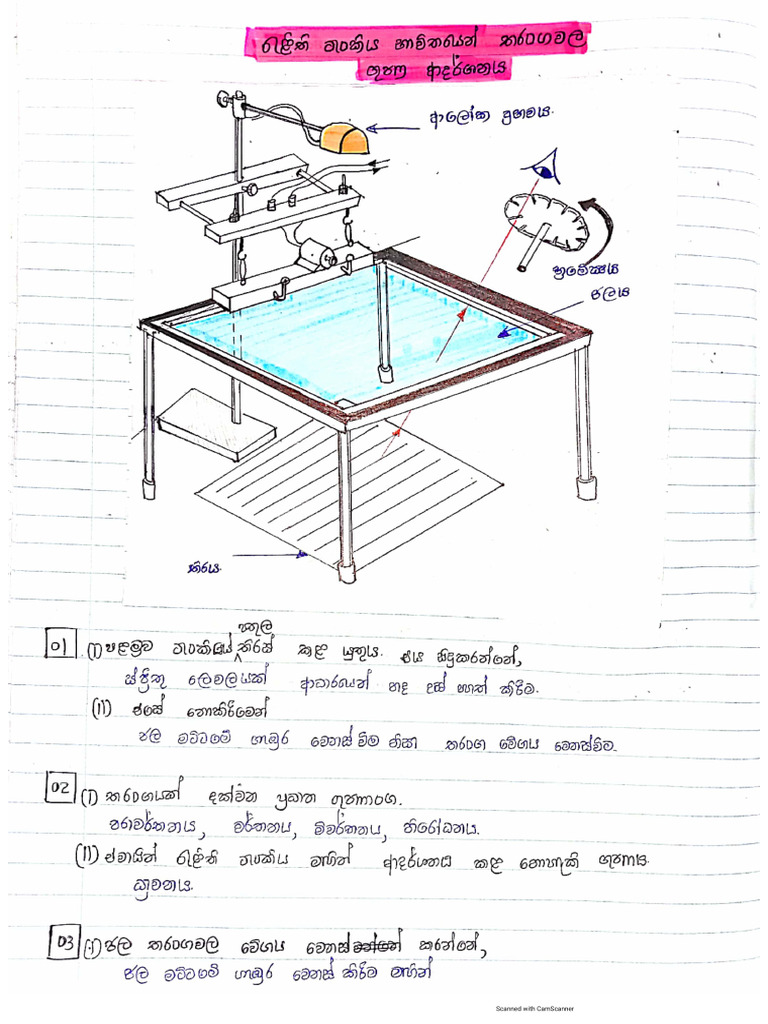 රැළිති ටැංකිය භාවිතයෙන් තරංගවල
ගුණ ආදර්ශනය
ආලෝක ප්‍රභවය.
භ්‍රමේක්ෂය
ජලය
තිරය.
01 (I) පළමුව ටැංකියේ පතුල තිරස් කළ යුතුය. එය සිදුකරන්නේ,
ස්ප්‍රීතු ලෙවලයක් ආධාරයෙන් පාද උස් පහත් කිරීම.
(II) එසේ නොකිරීමෙන්
ජල මට්ටමේ ගැඹුර වෙනස් වීම නිසා තරංග වේගය වෙනස්වීම.
02 (I) තරංගයක් දක්වන ප්‍රධාන ගුණාංග.
පරාවර්තනය, වර්තනය, විවර්තනය, නිරෝධනය.
(II) ඒවායින් රැළිති ටැංකිය මගින් ආදර්ශනය කළ නොහැකි ගුණය.
ධ්‍රැවනය.
03 (i) ජල තරංගවල වේගය වෙනස් කරන්නේ,
ජල මට්ටමේ ගැඹුර වෙනස් කිරීම මගින්
Scanned with CamScanner